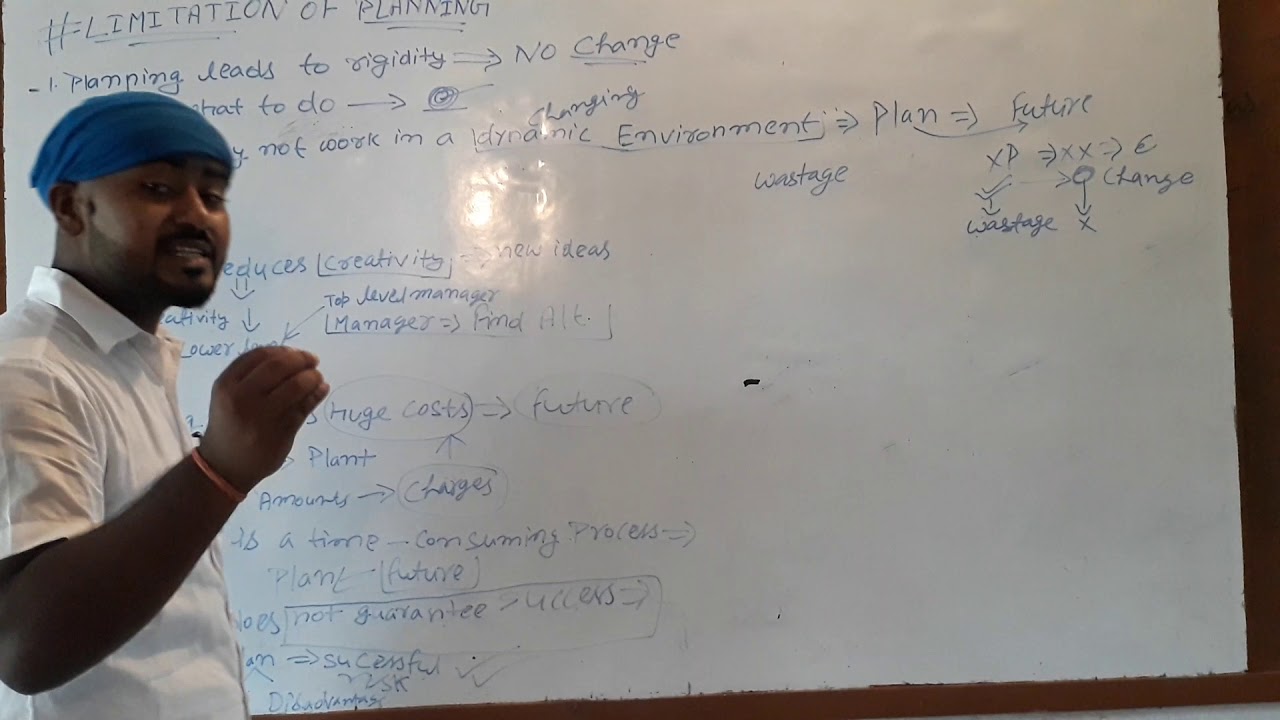 # LIMITATION OF PLANNING
1. Planning leads to rigidity ⇒ NO Change
what to do →
changing
not work in a dynamic Environment ⇒ Plan ⇒ Future
wastage
XP ⇒ XX ⇒ E
Change
wastage X
reduces [Creativity] ⇒ new ideas
Top level manager
eativity ↓ [Manager ⇒ Find Alt.]
Lower level
Huge costs ⇒ future
Plant
Amounts → Charges
is a time - consuming Process ⇒
Plan [future]
Does not guarantee success ⇒
lan ⇒ successful
Risk
Disadvantage